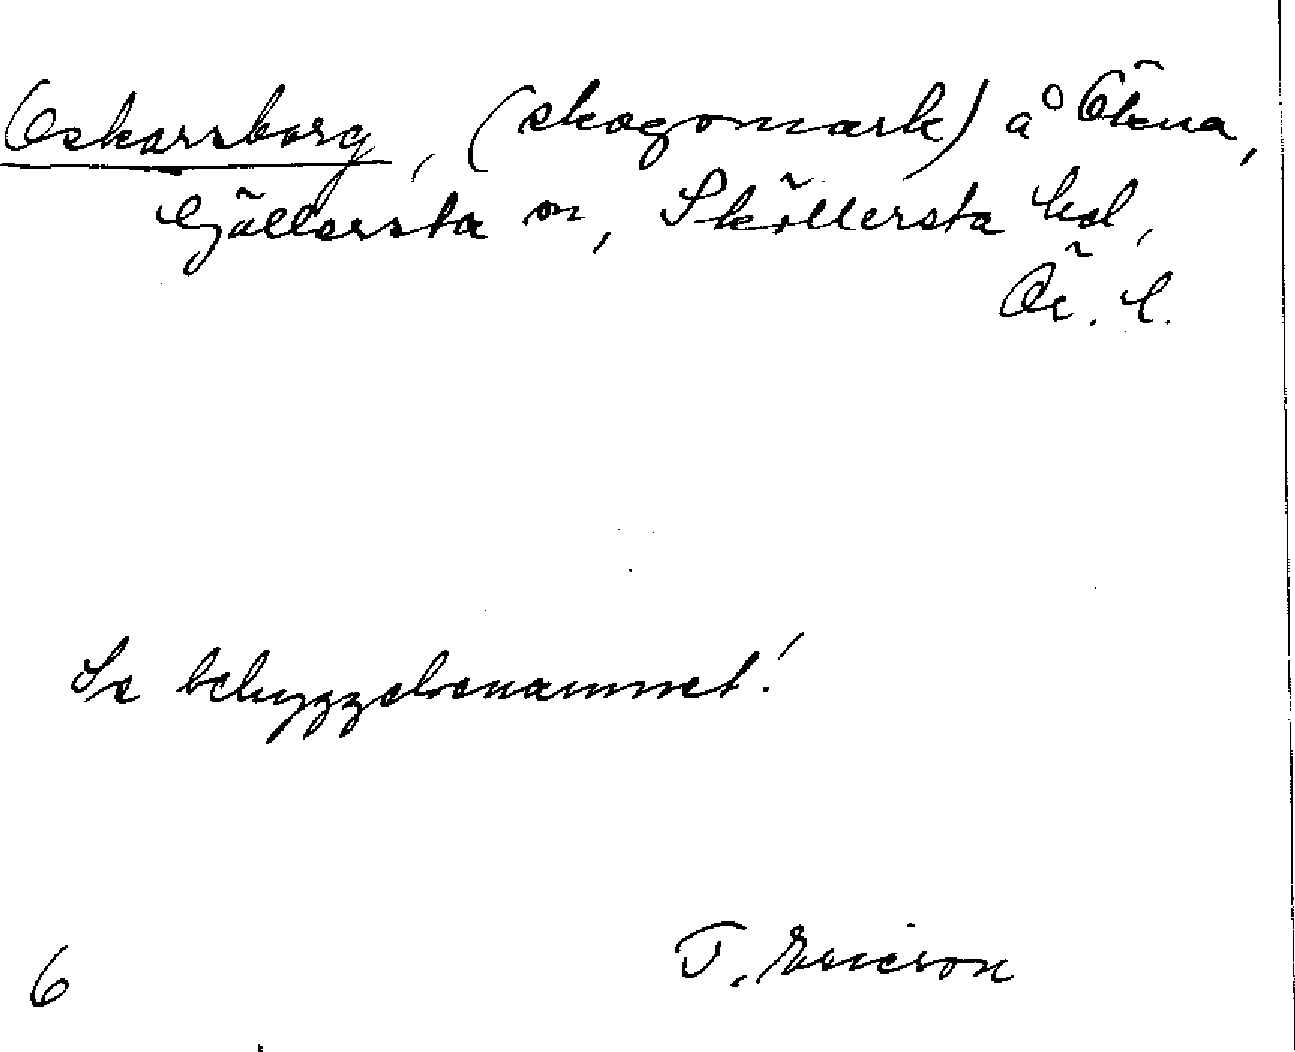 Oskarsborg, (skogsmark) å Ökna,
Gällersta sn, Sköllersta hd,
Ör. l.
Se bebyggelsenamnet!
6
T. Ericson